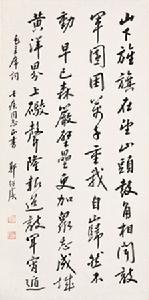 山下旌旗在望山頭鼓角相聞敵
軍圍困萬千重我自巋然不
動早已森嚴壁壘更加衆志成城
黃洋界上礮聲隆報道敵軍宵遁
毛主席詞 同志正書 鄭